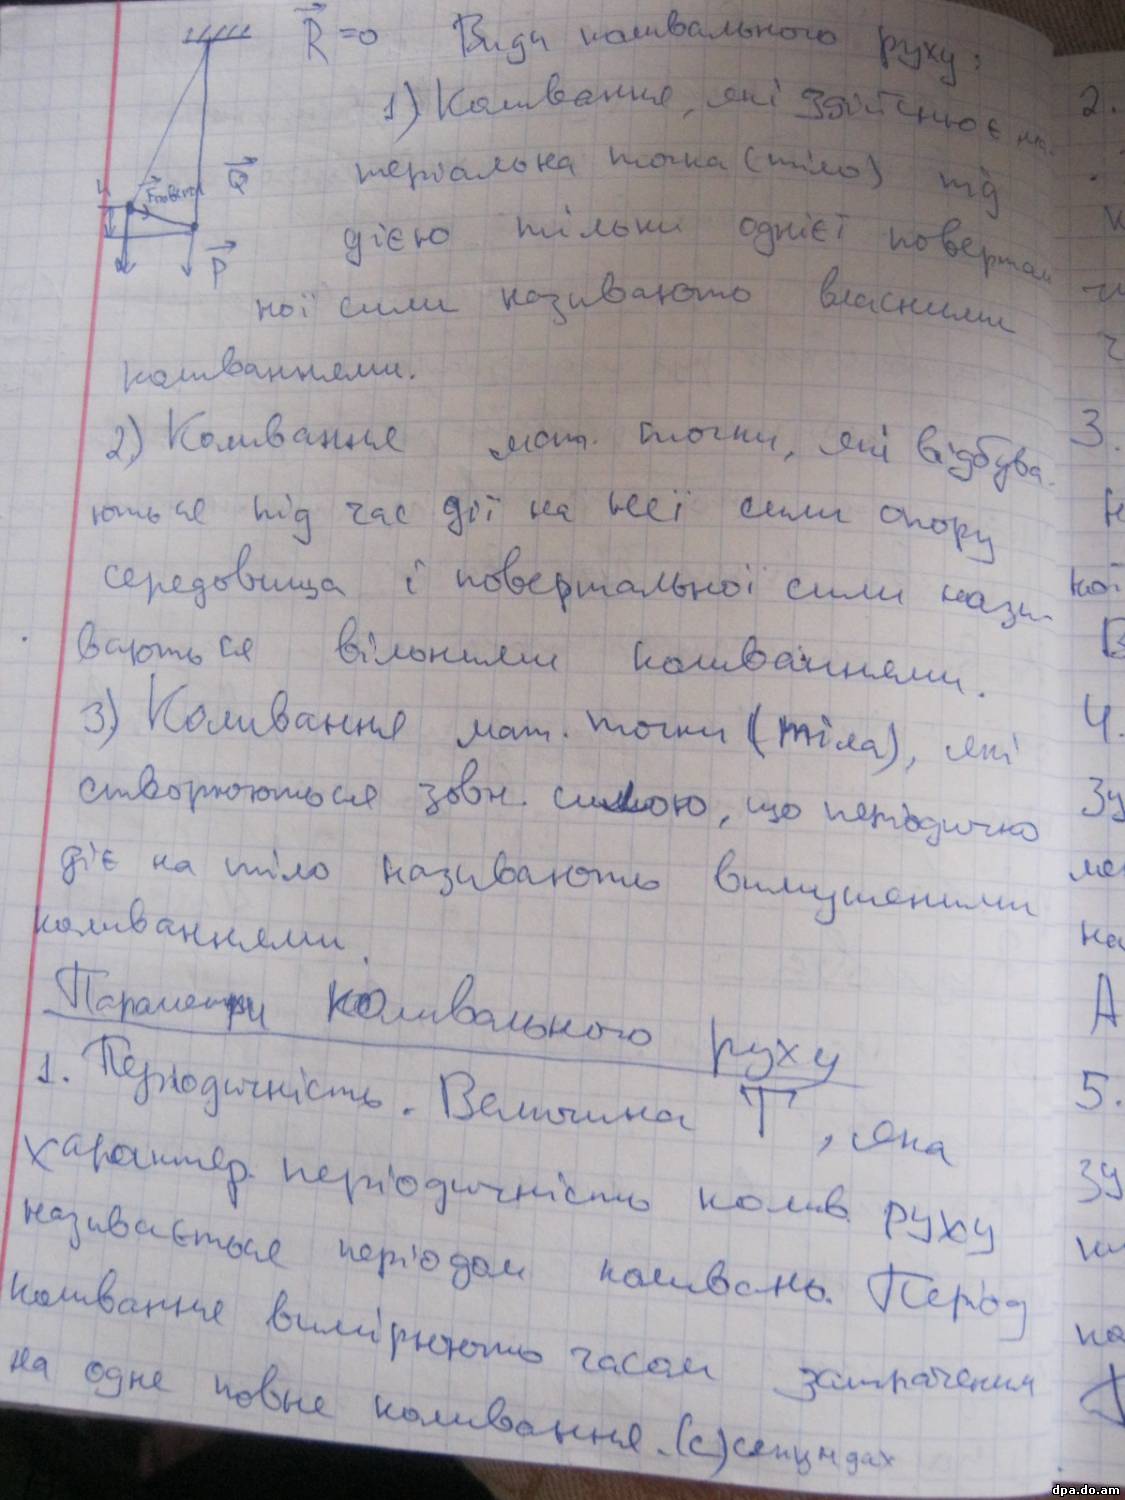 R⃗ =0 Види коливального руху:
1) Коливання, які здійснює ма-
теріальна точка (тіло) під
Q⃗
Fповерт
h
дією тільки однієї поверталь
P⃗
ної сили називають власними
коливаннями.
2) Коливання мат. точки, які відбува-
ються під час дії на неї сили опору
середовища і повертальної сили нази-
ваються вільними коливаннями.
3) Коливання мат. точки (тіла), які
створюються зовн. силою, що періодично
діє на тіло називають вимушеними
коливаннями.
Параметри коливального руху
1. Періодичність. Величина T, яка
характер. періодичність колив. руху
називається періодом коливань. Період
коливання вимірюють часом затраченим
на одне повне коливання. (с) секундах
2.
3.
кої
В
4.
Зу
на
А
5.
Зу
на
dpa.do.am